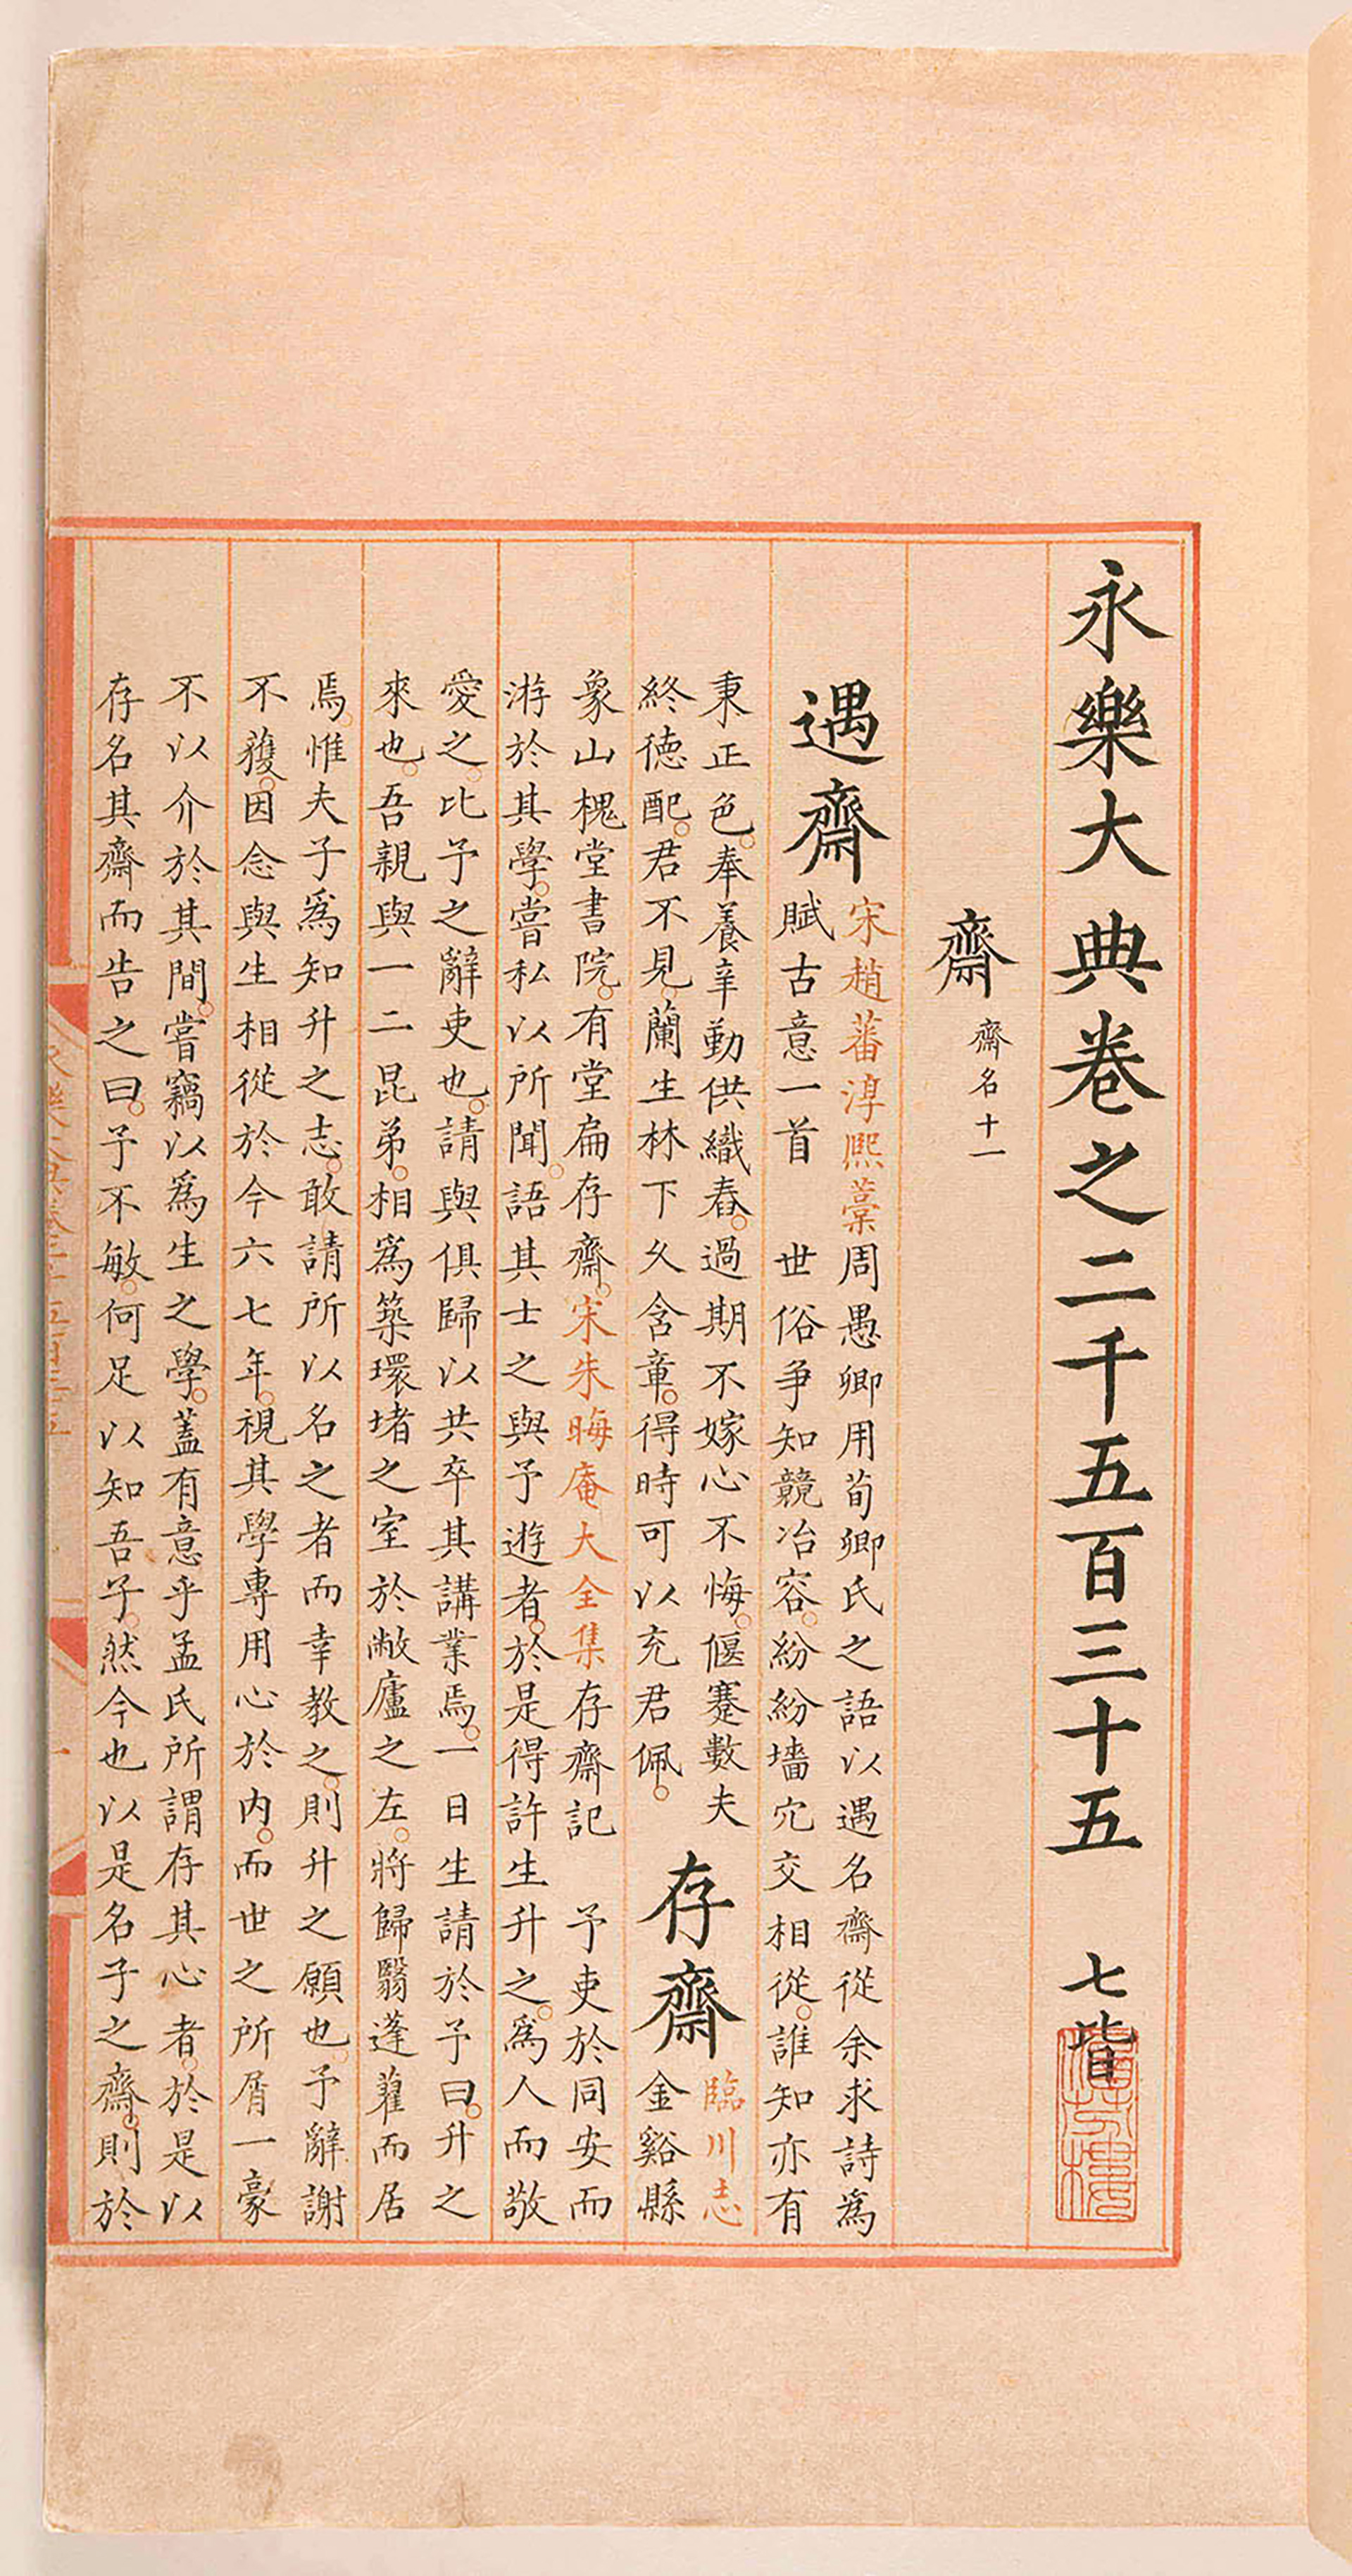 永樂大典卷之二千五百三十五 七皆
齋 齋名十一
遇齋
宋趙蕃淳熙藁周愚卿用荀卿氏之語以遇名齋從余求詩為
賦古意一首 世俗爭知競冶容紛紛墻穴交相從誰知亦有
秉正色奉養辛勤供織舂過期不嫁心不悔偃蹇數夫
終德配君不見蘭生林下久含章得時可以充君佩
存齋
臨川志
金谿縣
象山槐堂書院有堂扁存齋宋朱晦庵大全集存齋記 予吏於同安而
游於其學嘗私以所聞語其士之與予遊者於是得許生升之為人而敬
愛之比予之辭吏也請與俱歸以共卒其講業焉一日生請於予曰升之
來也吾親與一二昆弟相為築環堵之室於敝廬之左將歸翳蓬藋而居
焉惟夫子為知升之志敢請所以名之者而幸教之則升之願也予辭謝
不獲因念與生相從於今六七年視其學專用心於內而世之所屑一豪
不以介於其間嘗竊以為生之學蓋有意乎孟氏所謂存其心者於是以
存名其齋而告之曰予不敏何足以知吾子然今也以是名子之齋則於